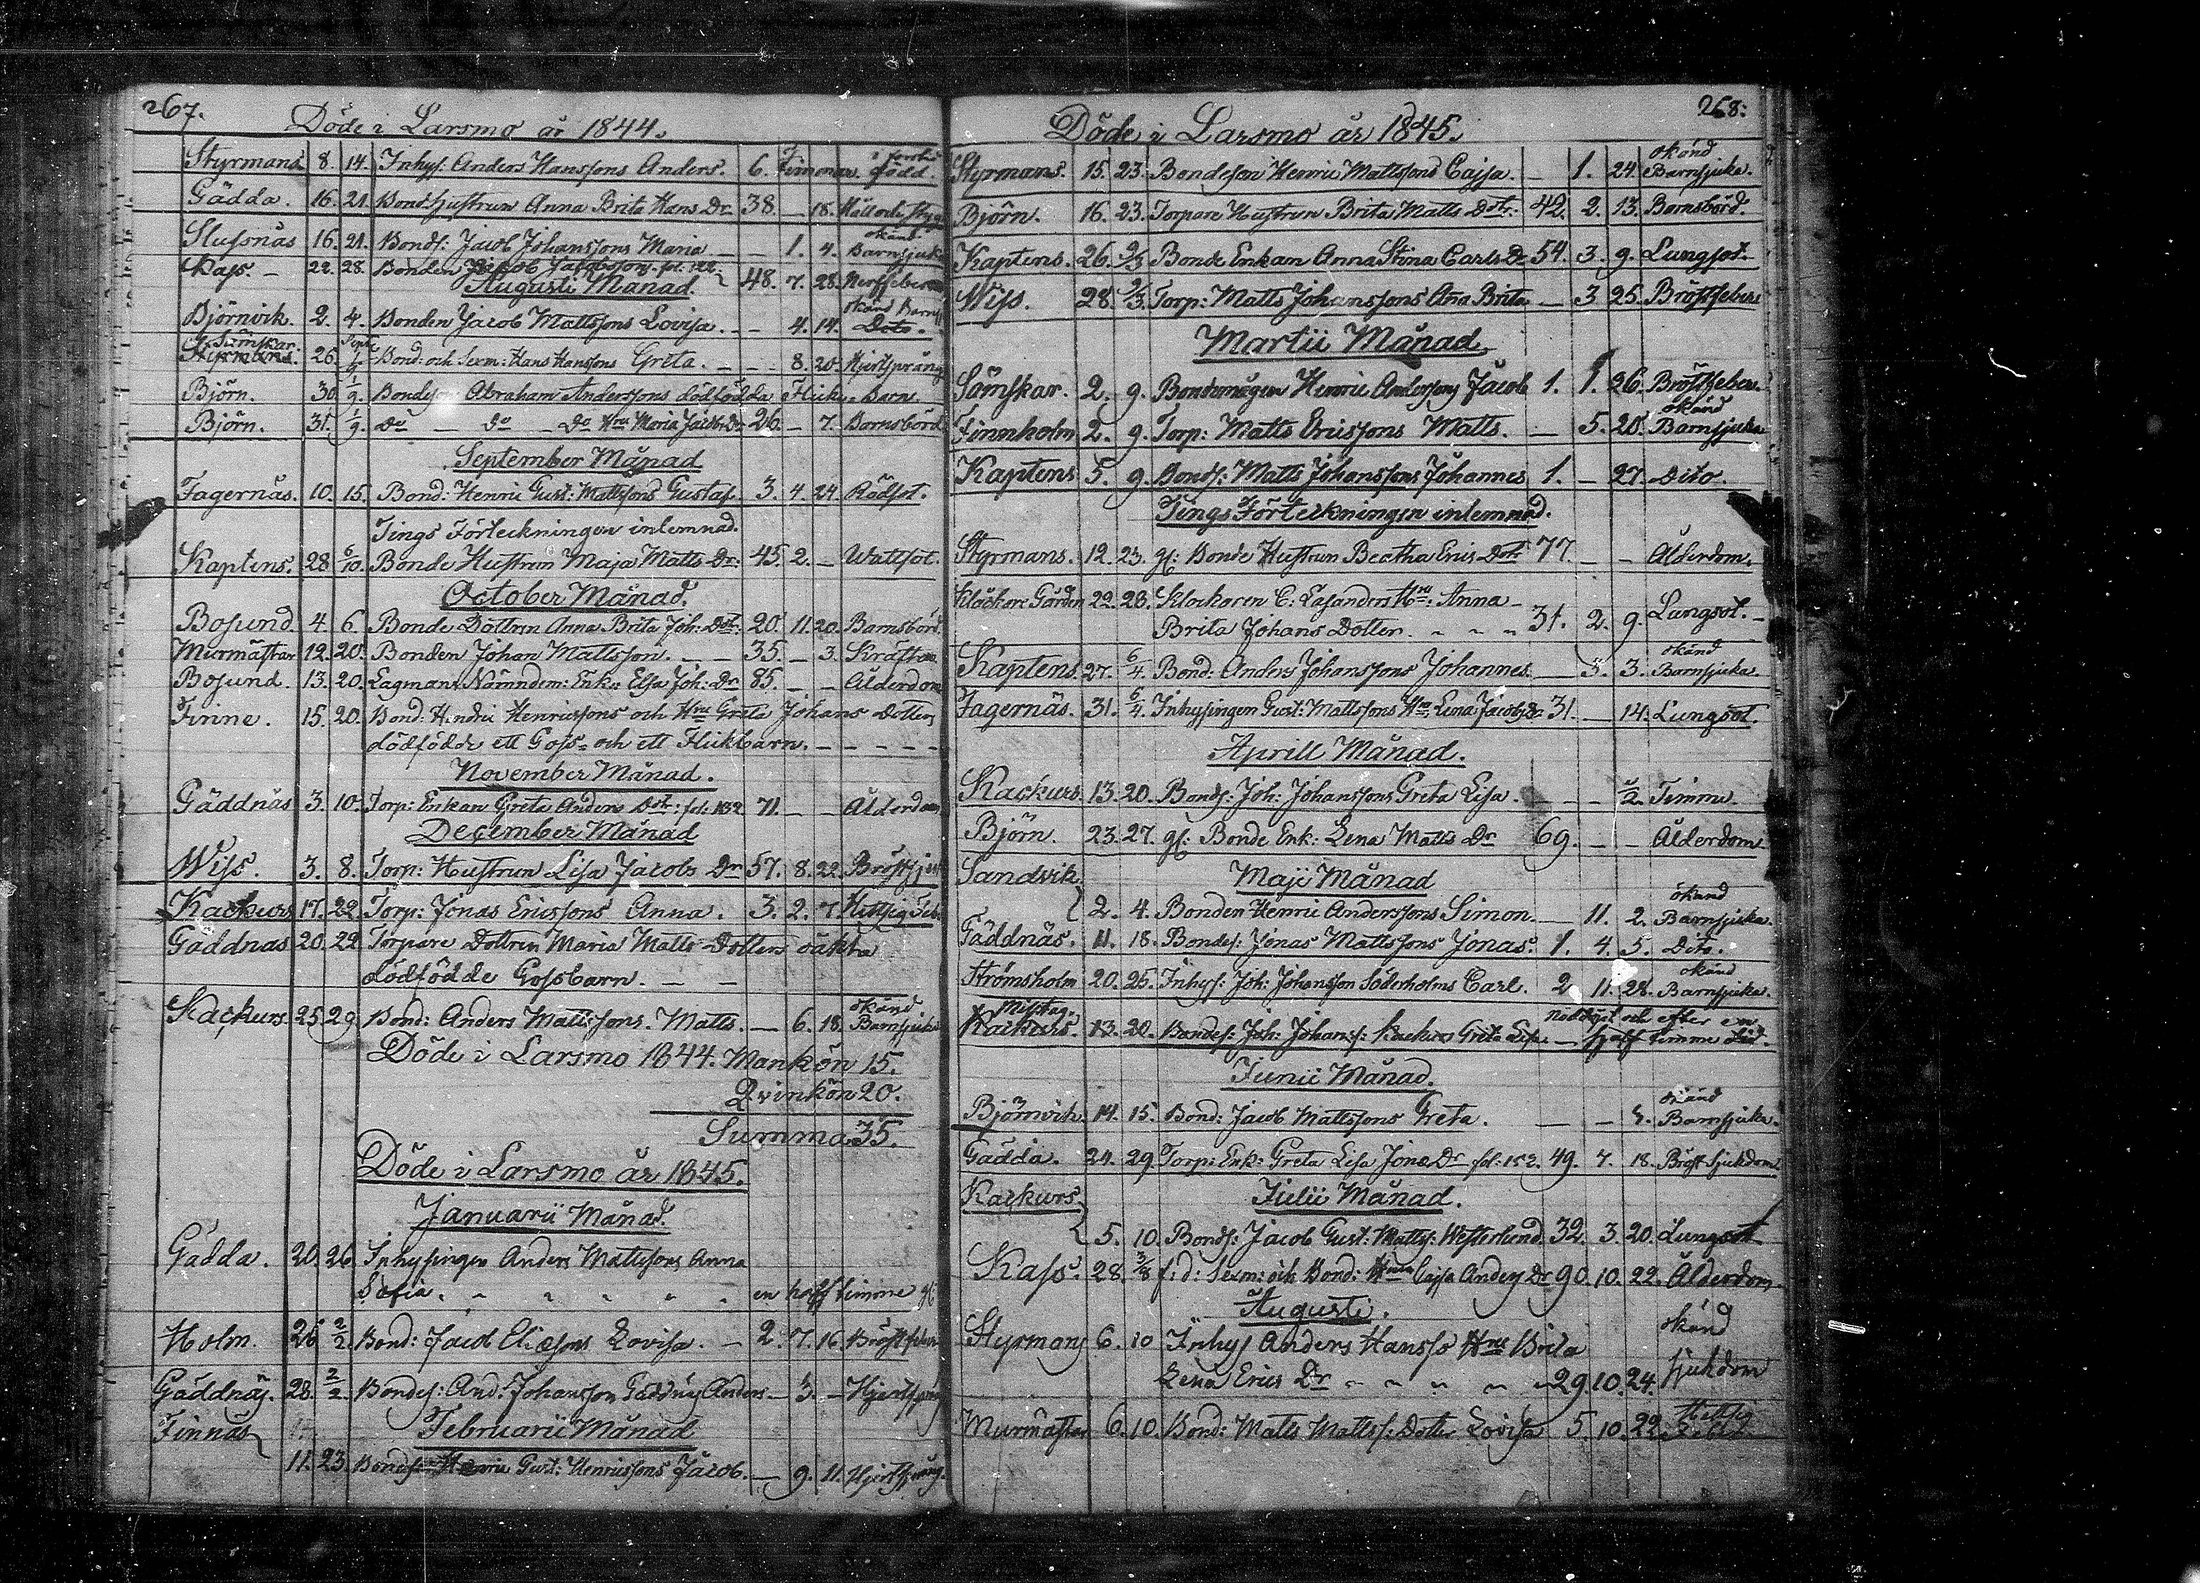 267.
Döde i Larsmo år 1844.
Styrmans. 8. 14. Inhys. Anders Hanssons Anders. 6. timmar född.
Gädda. 16. 21. Bond. Hustrun Anna Brita Hans Dr 38. — 18. Håll och Styng
okänd
Slussnäs 16. 21. Bonds: Jacob Johanssons Maria — 1. 4. Barnsjuka
Kass. — 22. 28. Bonden Jacob Jacobsson 48. 7. 28. Nerffeber
Augusti Månad.
okänd Barnsj
Björnvik. 2. 4. Bonden Jacob Mattssons Lovisa. — — 4. 14. Dito.
Sämskar.
Styrmans. 26. 1/9 Bond: och Sexm: Hans Hanssons Greta. — — 8. 20. Hjertsprång
Björn. 30. 1/9. Bondeson Abraham Anderssons dödfödda Flicke Barn.
Björn. 31. 1/9. do — do — do Hru Maria Jacobs Dr 26. — 7. Barnsbörd
September Månad
Fagernäs. 10. 15. Bond: Henric Gust: Mattssons Gustaf 3. 4. 24. Rödsot.
Tings Förteckningen inlemnad.
Kaptens. 28. 6/10. Bonde Hustrun Maja Matts Dr: 45. 2. — Wattsot.
October Månad.
Bosund. 4. 6. Bonde Dottren Anna Brita Joh: Dotr: 20. 11. 20. Barnsbörd
Murmästar 12. 20. Bonden Johan Mattsson. — 35. — 3. Kräftan
Bosund. 13. 20. Lagmans Nämndem: Enk: Elsa Joh: Dr 85. — — Ålderdom
Finne. 15. 20. Bond. Hendric Henricssons och Hru Greta Johans Dotters
dödfödde ett Goss- och ett Flickbarn. — — — — —
November Månad.
Gäddnäs 3. 10. Torp: Enkan Greta Anders Dotr: fol: 132 71. — — Ålderdom
December Månad
Wiss. 3. 8. Torp: Hustrun Lisa Jacobs Dr 57. 8. 22. Bröstsju
Kackurs 17. 22. Torp: Jonas Ericssons Anna. 3. 2. 7. Hettsig Feb
Gäddnäs 20. 29. Torpare Dottren Maria Matts Dotters oäkta
dödfödde Gossbarn. — —
okänd
Kackurs 25. 29. Bond: Anders Mattssons. Matts. — 6. 18. Barnsjuka
Döde i Larsmo 1844. Mankön 15.
Qvinkön 20.
Summa 35.
Döde i Larsmo år 1845.
Januarii Månad.
Gädda. 20. 26. Inhysingen Anders Mattssons Anna
Sofia. en half timme gl
Holm. 26. 2/2 Bond: Jacob Eliæsons Lovisa. — 2. 7. 16. Bröstfeber
Gäddnäs. 28. 2/2. Bondes: And: Johansson Gäddnäs Anders — 3. — Hjertsprång
Finnäs
Februarii Månad
11. 23. Bondes: Henric Gust: Henricssons Jacob. — 9. 11. Hjertsprång.
268.
Döde i Larsmo år 1845.
okänd
Styrmans. 15. 23. Bondeson Henric Mattssons Cajsa. — 1. 24. Barnsjuka.
Björn. 16. 23. Torpare Hustrun Brita Matts Dotr: 42. 2. 13. Barnsbörd.
Kaptens. 26. 9/3 Bonde Enkan Anna Stina Carls Dr 54. 3. 9. Lungsot.
Wiss. 28. 9/3. Torp: Matts Johanssons Aña Brita — 3. 25. Bröstfeber
Martii Månad.
Sämskar. 2. 9. Bondemågen Henric Anderssons Jacob 1. 1. 26. Bröstfeber.
okänd
Finnholm 2. 9. Torp: Matts Ericssons Matts. — 5. 28. Barnsjuka
Kaptens 5. 9. Bonds: Matts Johanssons Johannes 1. — 27. Dito.
Tings Förteckningen inlemnad.
Styrmans. 12. 23. gl: Bonde Hustrun Beatha Erics Dotr 77. — — Ålderdom.
Klåckare Gården 22. 23. Klockaren C: Casanders Hru: Anna
Brita Johans Dotter. 31. 2. 9. Lungsot.
okänd
Kaptens 27. 6/4. Bond: Anders Johanssons Johannes. — 3. 3. Barnsjuka
Fagernäs. 31. 6/4. Inhysingen Gust: Mattssons Hru, Lena Jacobs Dr 31. — 14. Lungsot.
Aprill Månad.
Kackurs 13. 20. Bonds: Joh: Johanssons Greta Lisa. — — 1/2. Timme.
Björn. 23. 27. gl: Bonde Enk: Lena Matts Dr 69. — — Ålderdom
Sandvik
Maji Månad
okänd
2. 4. Bonden Henric Anderssons Simon. — 11. 2. Barnsjuka.
Gäddnäs. 11. 18. Bondes: Jonas Mattssons Jonas. 1. 4. 5. Dito.
okänd
Strömsholm 20. 25. Inhys: Joh: Johansson Söderholms Carl. 2. 11. 28. Barnsjuka.
Misstag. Nöddöpt och efter en
Kackurs. 13. 20. Bondes: Joh: Johans: Kackurs Greta Lisa — half timme död.
Junii Månad.
okänd
Björnvik. 14. 15. Bond: Jacob Mattssons Greta. — — 4. Barnsjuka.
Gädda. 24. 29. Torp: Enk: Greta Lisa Jonæ Dr fol: 152. 49. 7. 18. Bröst Sjukdom
Kackurs
Julii Månad.
5. 10. Bonds: Jacob Gust: Matts: Westerlund 32. 3. 20. Lungsot
Kass. 28. 3/8 f: d: Sexm: och Bond: Cajsa Anders Dr 90. 10. 22. Ålderdom.
Augusti.
Styrmans 6. 10 Inhys Anders Hanss Hrus Brita okänd
Lena Erics Dr 29. 10. 24. sjukdom
Murmästar 6. 10. Bond: Matts Matts: Dotter Lovisa 5. 10. 22. Hettsig
Feber.